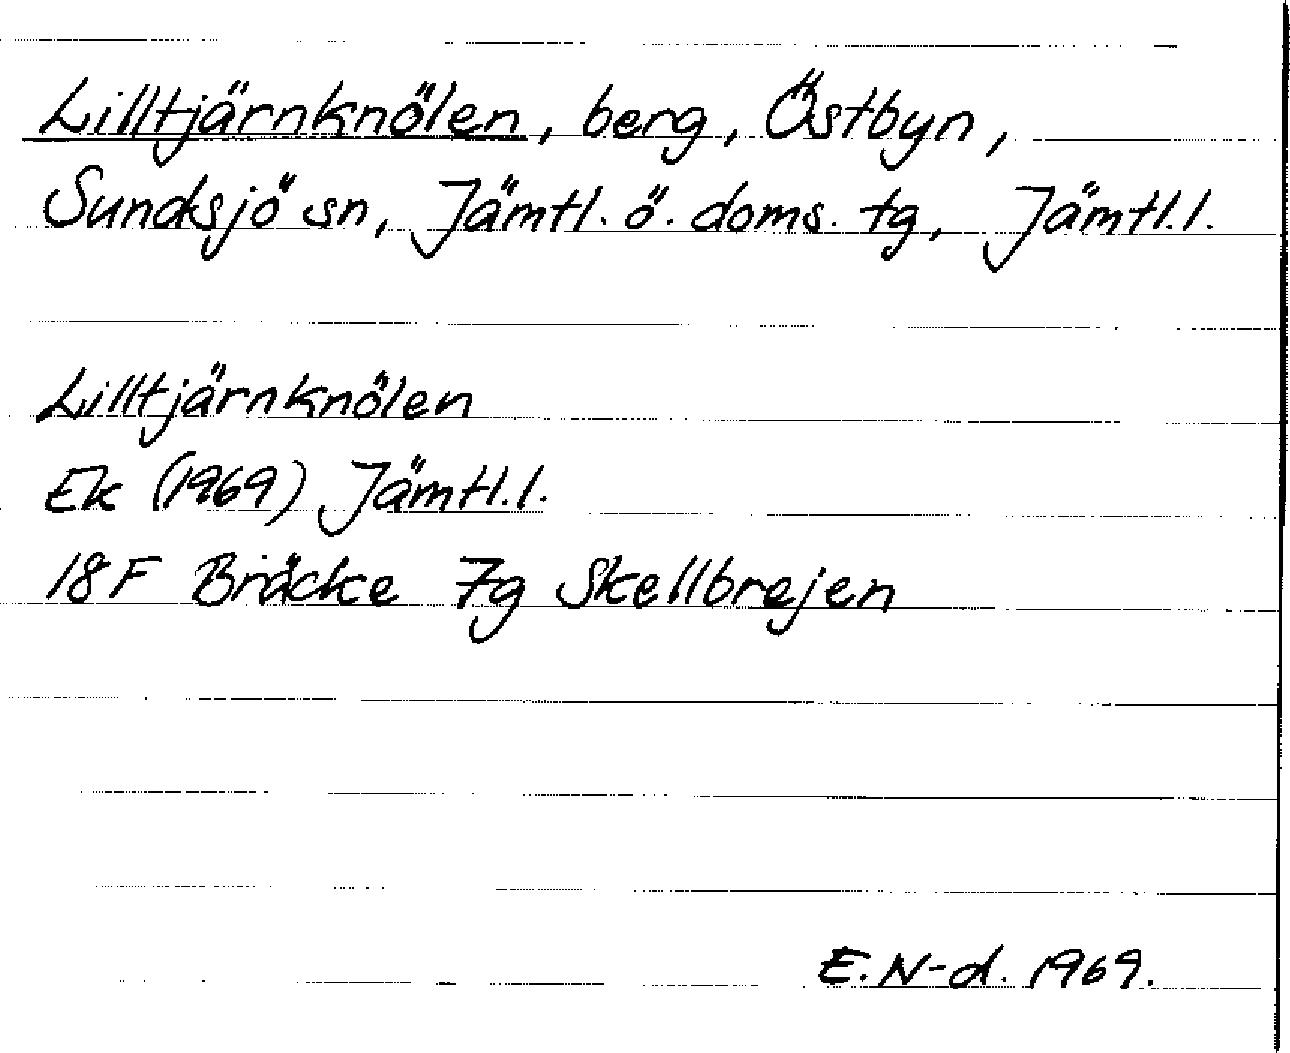 Lilltjärnknölen, berg, Östbyn,
Sundsjö sn, Jämtl. ö. doms. tg, Jämtl.l.
Lilltjärnknölen
Ek (1969) Jämtl.l.
18F Bräcke 7g Skellbrejen
E.N-d. 1969.